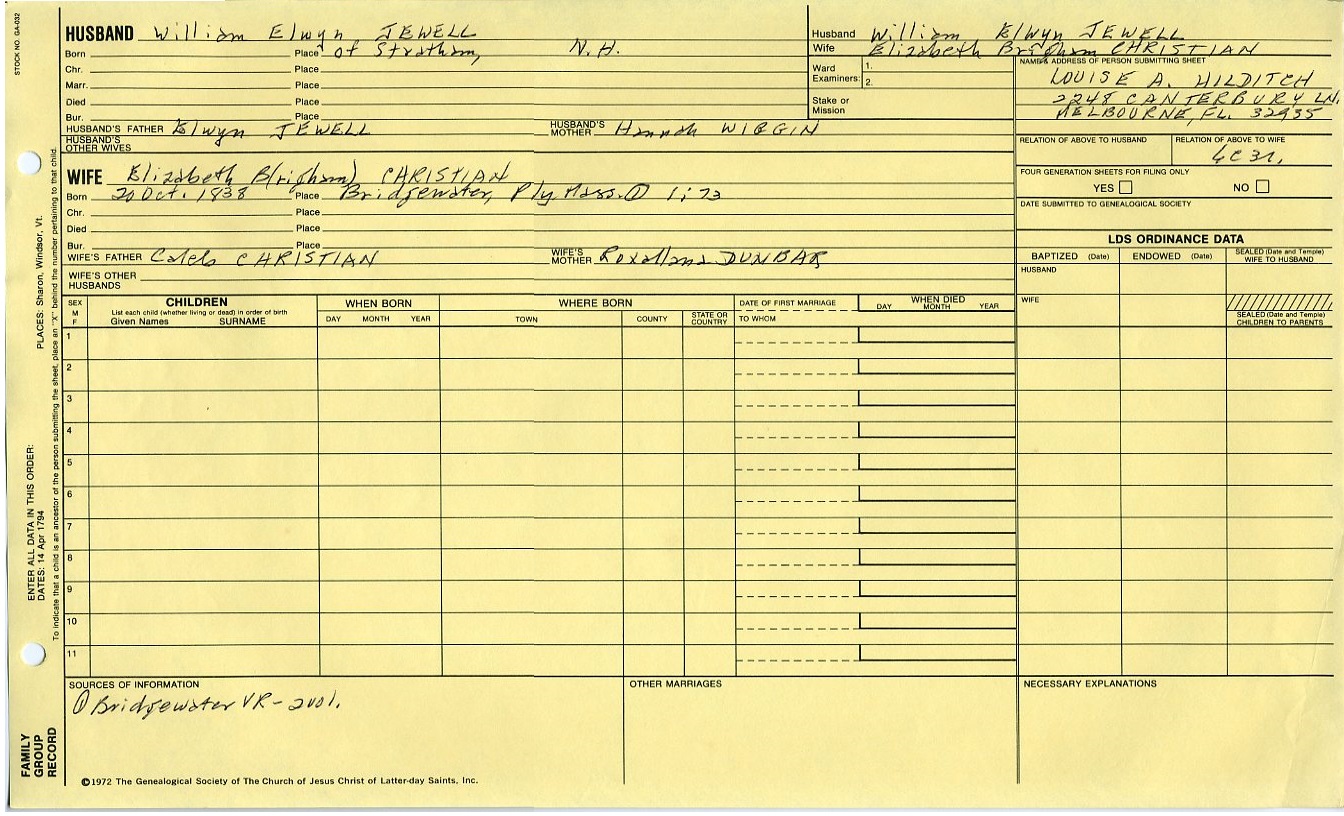 STOCK NO. GA-032
HUSBAND William Elwyn JEWELL
Born Place of Stratham, N.H.
Chr. Place
Marr. Place
Died Place
Bur. Place
HUSBAND'S FATHER Elwyn JEWELL HUSBAND'S MOTHER Hannah WIGGIN
HUSBAND'S OTHER WIVES
WIFE Elizabeth B(righam) CHRISTIAN
Born 20 Oct. 1838 Place Bridgewater, Ply. Mass. ① 1:73
Chr. Place
Died Place
Bur. Place
WIFE'S FATHER Caleb CHRISTIAN WIFE'S MOTHER Roxellana DUNBAR
WIFE'S OTHER HUSBANDS
Husband William Elwyn JEWELL
Wife Elizabeth Brigham CHRISTIAN
Ward Examiners: 1.
2.
Stake or Mission
NAME & ADDRESS OF PERSON SUBMITTING SHEET
LOUISE A. HILDITCH
2248 CANTERBURY LN.
MELBOURNE, FL. 32935
RELATION OF ABOVE TO HUSBAND RELATION OF ABOVE TO WIFE
FOUR GENERATION SHEETS FOR FILING ONLY
YES NO
DATE SUBMITTED TO GENEALOGICAL SOCIETY
LDS ORDINANCE DATA
BAPTIZED (Date) ENDOWED (Date) SEALED (Date and Temple) WIFE TO HUSBAND
HUSBAND
WIFE
SEALED (Date and Temple) CHILDREN TO PARENTS
SEX M F
CHILDREN
List each child (whether living or dead) in order of birth
Given Names SURNAME
WHEN BORN
DAY MONTH YEAR
WHERE BORN
TOWN COUNTY STATE OR COUNTRY
DATE OF FIRST MARRIAGE
TO WHOM
WHEN DIED
DAY MONTH YEAR
1
2
3
4
5
6
7
8
9
10
11
SOURCES OF INFORMATION
① Bridgewater VR - 2vol.
OTHER MARRIAGES
NECESSARY EXPLANATIONS
©1972 The Genealogical Society of The Church of Jesus Christ of Latter-day Saints, Inc.
FAMILY GROUP RECORD
ENTER ALL DATA IN THIS ORDER:
DATES: 14 Apr 1794 PLACES: Sharon, Windsor, Vt.
To indicate that a child is an ancestor of the person submitting the sheet, place an "X" behind the number pertaining to that child.